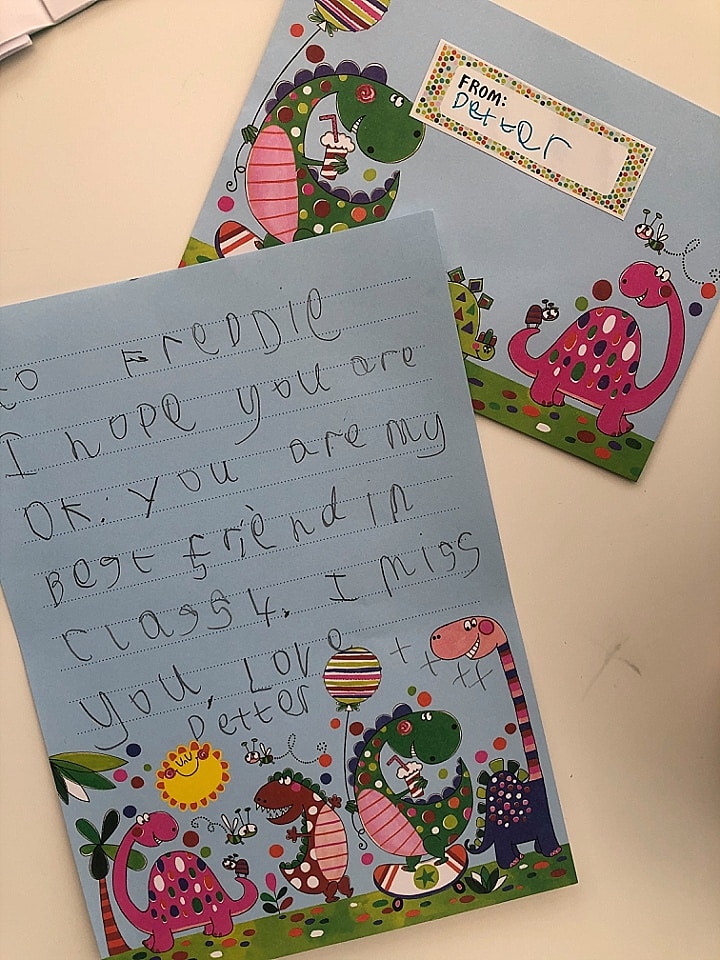 FROM:
Detter
to FreDDie
I hope you are
OK. You are my
Best friend in
class 4. I miss
you, Love
D'etter